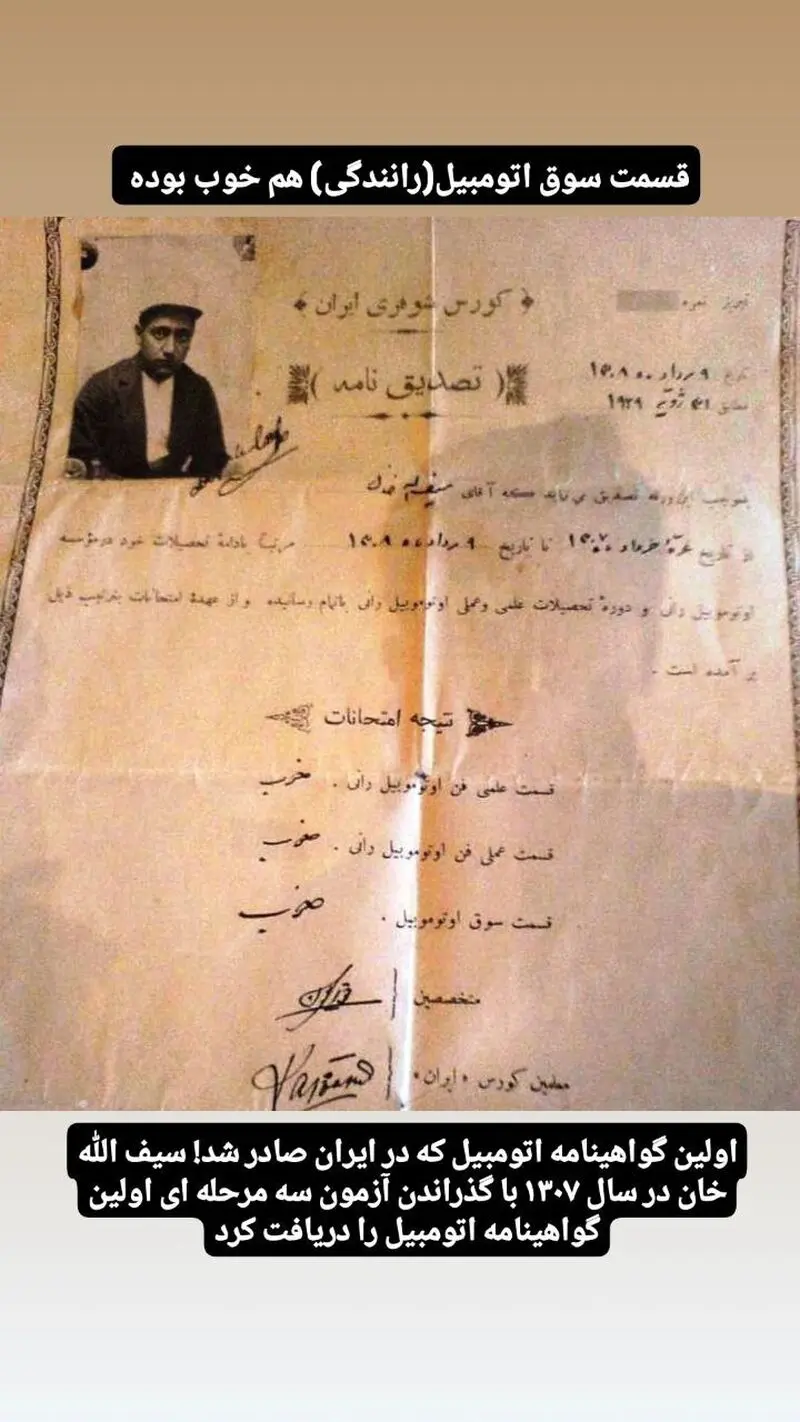 قسمت سوق اتومبیل(رانندگی) هم خوب بوده
کورس شوفری ایران
تبریز نمره
تصدیق نامه
تاریخ ۹ مرداد ماه ۱۳۰۸
مطابق ۳۱ ژوئیه ۱۹۲۹
بموجب این ورقه تصدیق می نماید که آقای سیف اله
از تاریخ غرۀ خرداد ۱۳۰۷ تا تاریخ ۹ مرداد ماه ۱۳۰۸ مرتباً بادامۀ تحصیلات خود در مؤسسه
اوتوموبیل رانی و دورۀ تحصیلات علمی وعملی اوتوموبیل رانی باتمام رسانیده و از عهدۀ امتحانات بترتیب ذیل
بر آمده است .
نتیجه امتحانات
قسمت علمی فن اوتوموبیل رانی . خوب
قسمت عملی فن اوتوموبیل رانی . خوب
قسمت سوق اوتوموبیل . خوب
متخصصین
معلمین کورس «ایران»
اولین گواهینامه اتومبیل که در ایران صادر شد! سیف الله
خان در سال ۱۳۰۷ با گذراندن آزمون سه مرحله ای اولین
گواهینامه اتومبیل را دریافت کرد